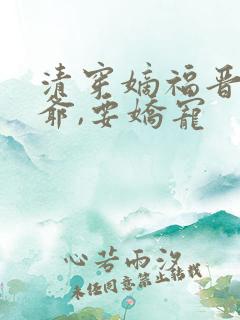 清穿嫡福晋
爺,要嬌寵
心若雨汐
未经同意禁止转载